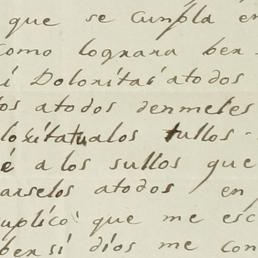 que se Cunpla en
como lograra ben
i Dolorítas atodos
os atodos denmeles
losítatualos tullos
é a los sullos que
arselos atodos en
uplico que me esc
ben sí díos me con